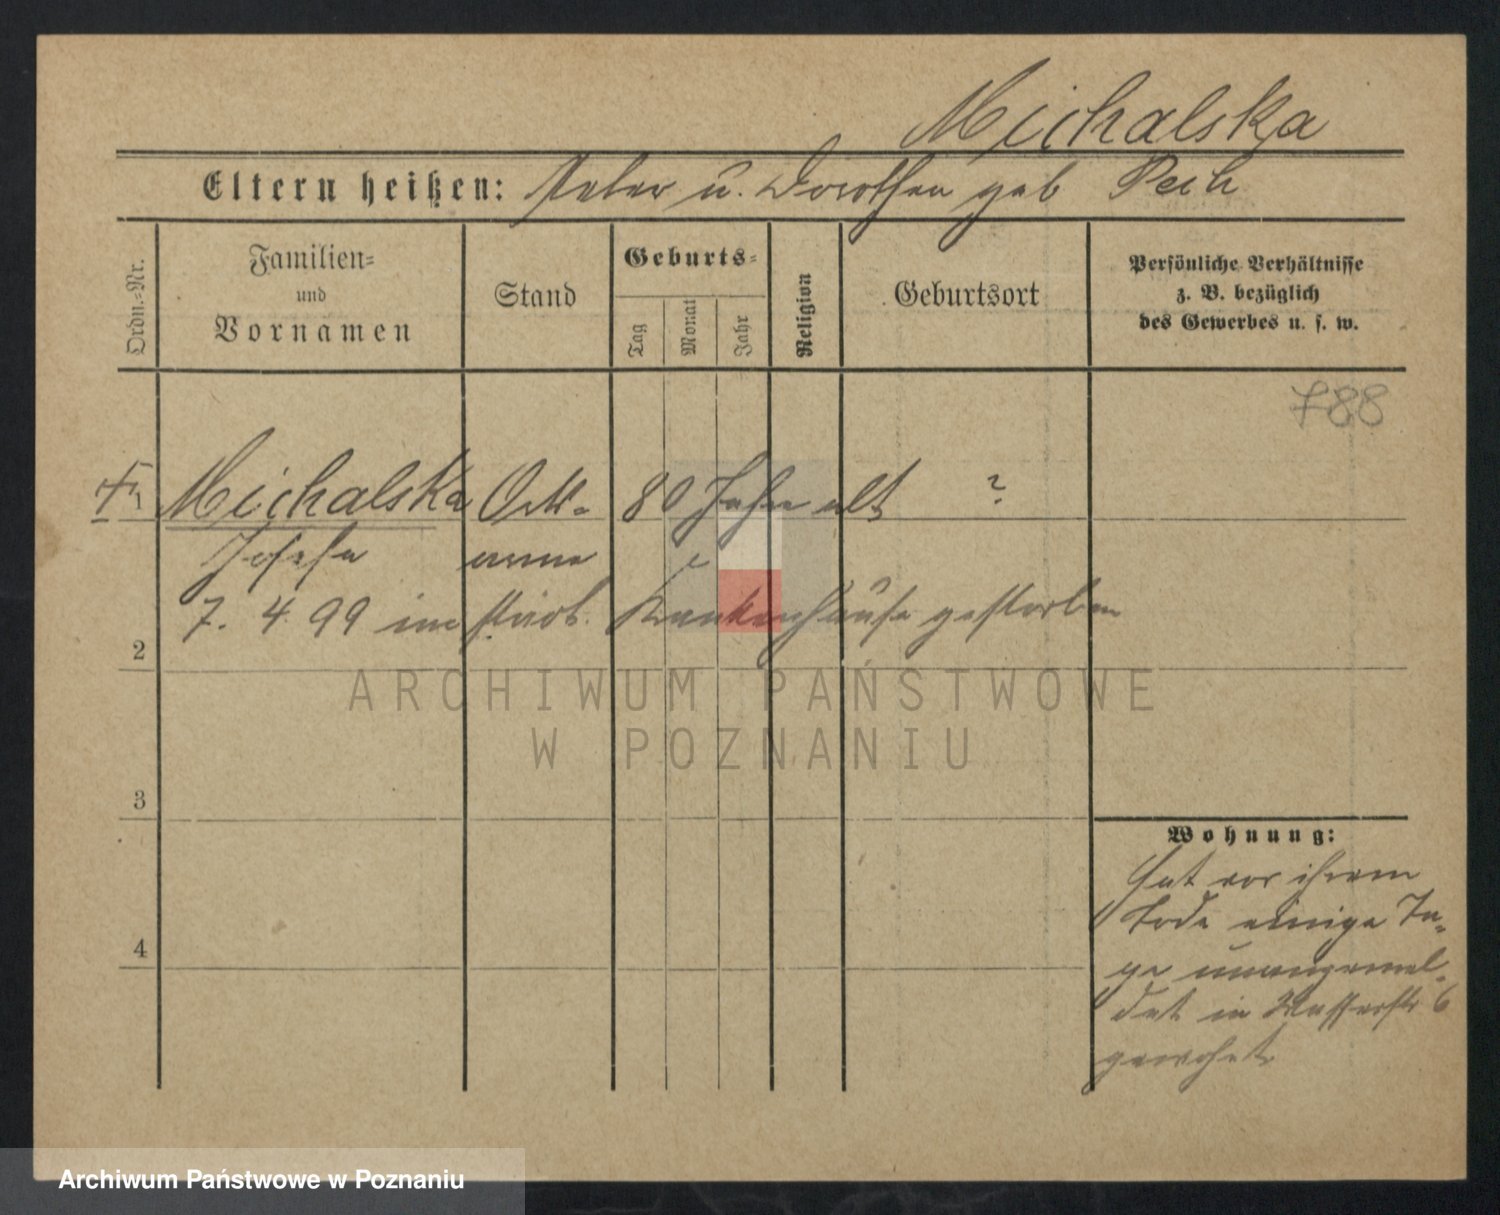 Michalska
Eltern heißen: Peter u. Dorothea geb Pech
Ordn.=Nr.
Familien=
und
Vornamen
Stand
Geburts=
Tag
Monat
Jahr
Religion
Geburtsort
Persönliche Verhältnisse
z. B. bezüglich
des Gewerbes u. s. w.
788
1 Michalska Orts= 80 Jahre alt ?
Josefa arme
7. 4. 99 im städt. Krankenhause gestorben
2
3
4
Wohnung:
Hat vor ihrem
Tode einige Ta=
ge unangemel=
det in Wasserstr 6
gewohnt
ARCHIWUM PAŃSTWOWE
W POZNANIU
Archiwum Państwowe w Poznaniu